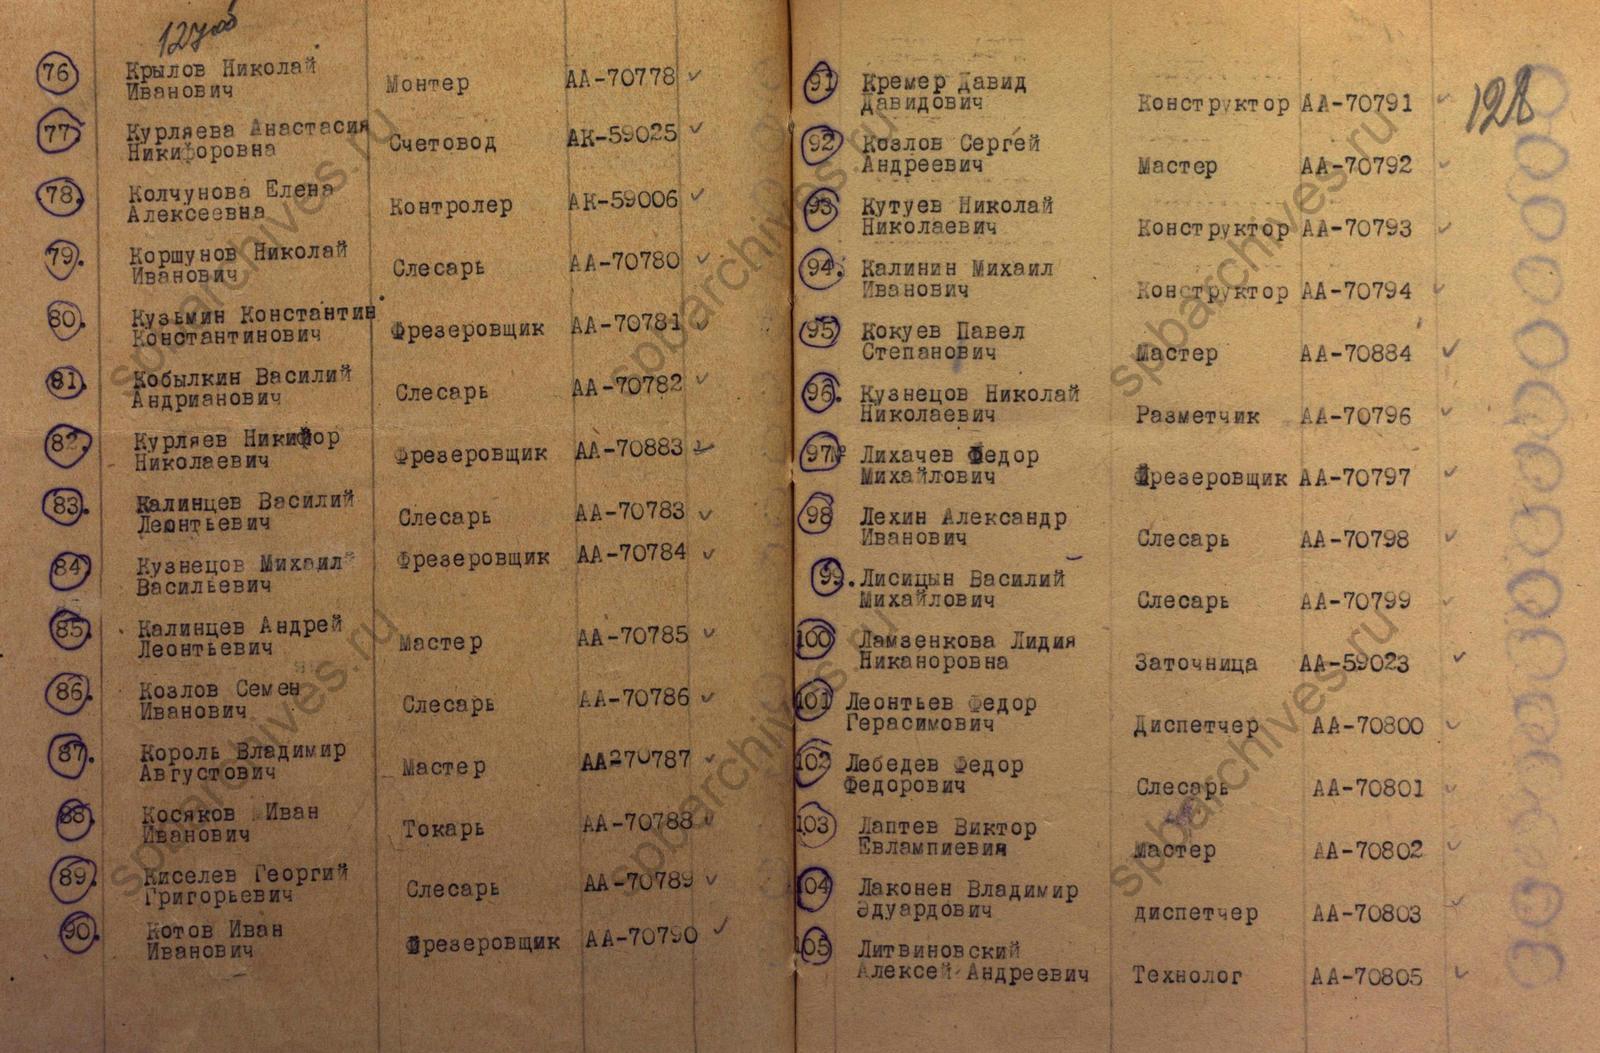 127об
76 Крылов Николай
Иванович Монтер АА-70778
77 Курляева Анастасия
Никифоровна Счетовод АК-59025
78. Колчунова Елена
Алексеевна Контролер АК-59006
79. Коршунов Николай
Иванович Слесарь АА-70780
80. Кузьмин Константин
Константинович Фрезеровщик АА-70781
81. Кобылкин Василий
Андрианович Слесарь АА-70782
82. Курляев Никифор
Николаевич Фрезеровщик АА-70883
83. Калинцев Василий
Леонтьевич Слесарь АА-70783
84 Кузнецов Михаил
Васильевич Фрезеровщик АА-70784
85. Калинцев Андрей
Леонтьевич Мастер АА-70785
86. Козлов Семен
Иванович Слесарь АА-70786
87. Король Владимир
Августович Мастер АА270787
88. Косяков Иван
Иванович Токарь АА-70788
89. Киселев Георгий
Григорьевич Слесарь АА-70789
90. Котов Иван
Иванович Фрезеровщик АА-70790
128
91 Кремер Давид
Давидович Конструктор АА-70791
92 Козлов Сергей
Андреевич Мастер АА-70792
93 Кутуев Николай
Николаевич Конструктор АА-70793
94. Калинин Михаил
Иванович Конструктор АА-70794
95 Кокуев Павел
Степанович Мастер АА-70884
96. Кузнецов Николай
Николаевич Разметчик АА-70796
97 Лихачев Федор
Михайлович Фрезеровщик АА-70797
98 Лехин Александр
Иванович Слесарь АА-70798
99. Лисицын Василий
Михайлович Слесарь АА-70799
100 Ламзенкова Лидия
Никаноровна Заточница АА-59023
101 Леонтьев Федор
Герасимович Диспетчер АА-70800
102 Лебедев Федор
Федорович Слесарь АА-70801
103 Лаптев Виктор
Евлампиевия Мастер АА-70802
104 Лаконен Владимир
Эдуардович диспетчер АА-70803
105 Литвиновский
Алексей Андреевич Технолог АА-70805
spbarchives.ru
spbarchives.ru
spbarchives.ru
spbarchives.ru
spbarchives.ru
spbarchives.ru